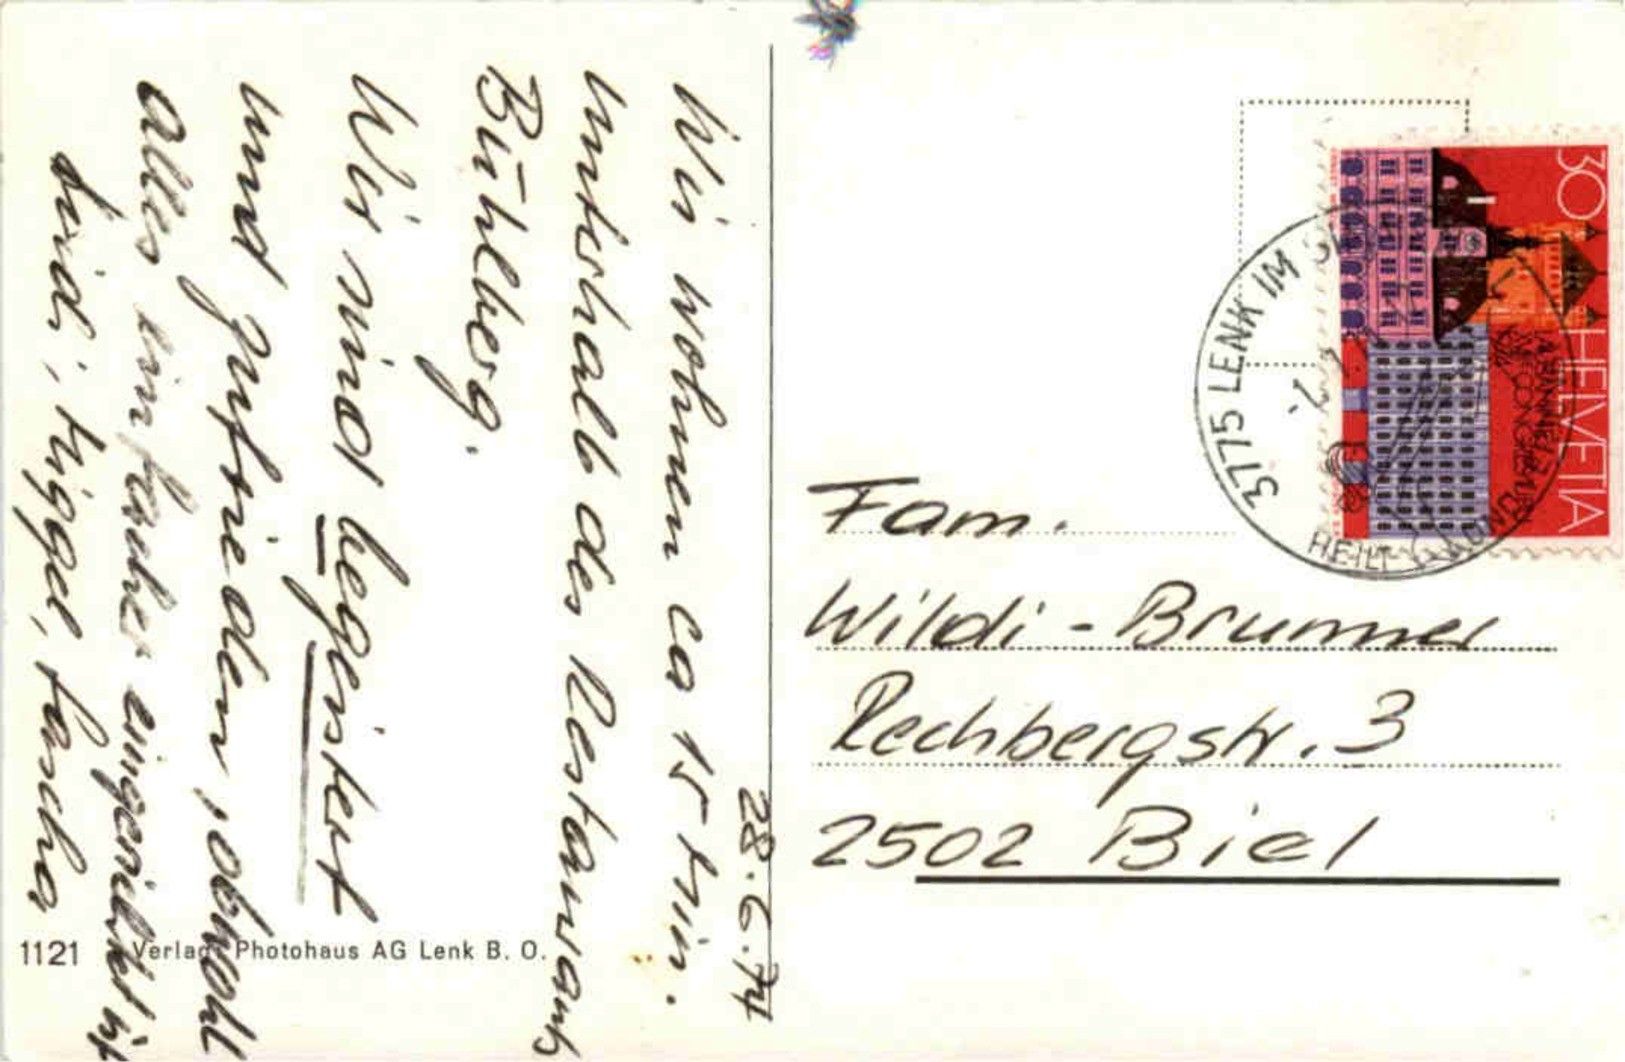 28.6.74
Wir wohnen ca 15 Min.
unterhalb des Restaurants
Bühlberg.
Wir sind begeistert
und zufrieden, obwohl
alles einfacher eingerichtet ist
Heidi, Küggel, Sascha
1121 Verlag: Photohaus AG Lenk B. O.
30
HELVETIA
3775 LENK IM
HEIL
Fam.
Wildi-Brunner
Rechbergstr. 3
2502 Biel